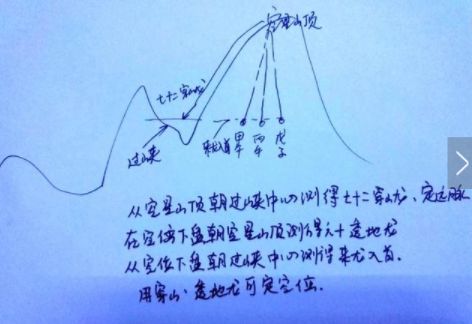 穴星山顶
七十二穿山龙
过峡
甲子
丙子
戊子
从穴星山顶朝过峡中心测得七十二穿山龙、定远脉
在穴位下盘朝穴星山顶测得六十透地龙
从穴位下盘朝过峡中心测得来龙入首.
用穿山、透地龙可定穴位.